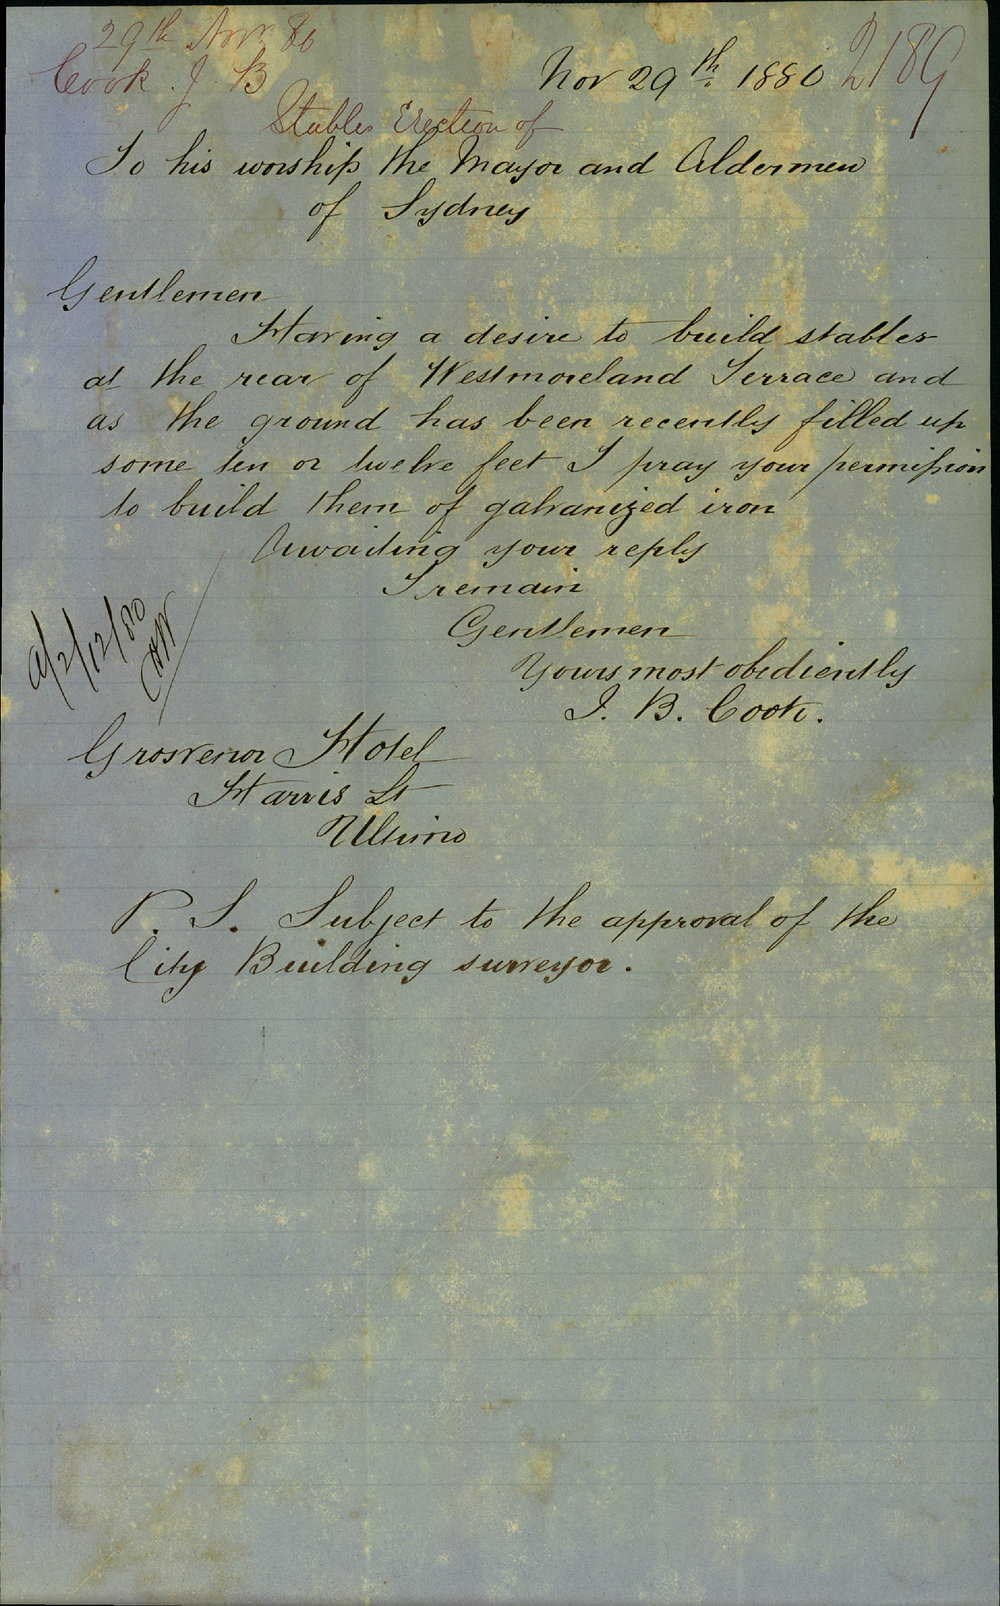 29th Nov 80
Cook J. B
Nov 29th 1880
2189
Stables Erection of
To his worship the Mayor and Aldermen
of Sydney
Gentlemen
Having a desire to build stables
at the rear of Westmoreland Terrace and
as the ground has been recently filled up
some ten or twelve feet I pray your permission
to build them of galvanized iron
Awaiting your reply
I remain
Gentlemen
Yours most obediently
J. B. Cook.
2/12/80
Grosvenor Hotel
Harris St
Ultimo
P. S. Subject to the approval of the
City Building surveyor.